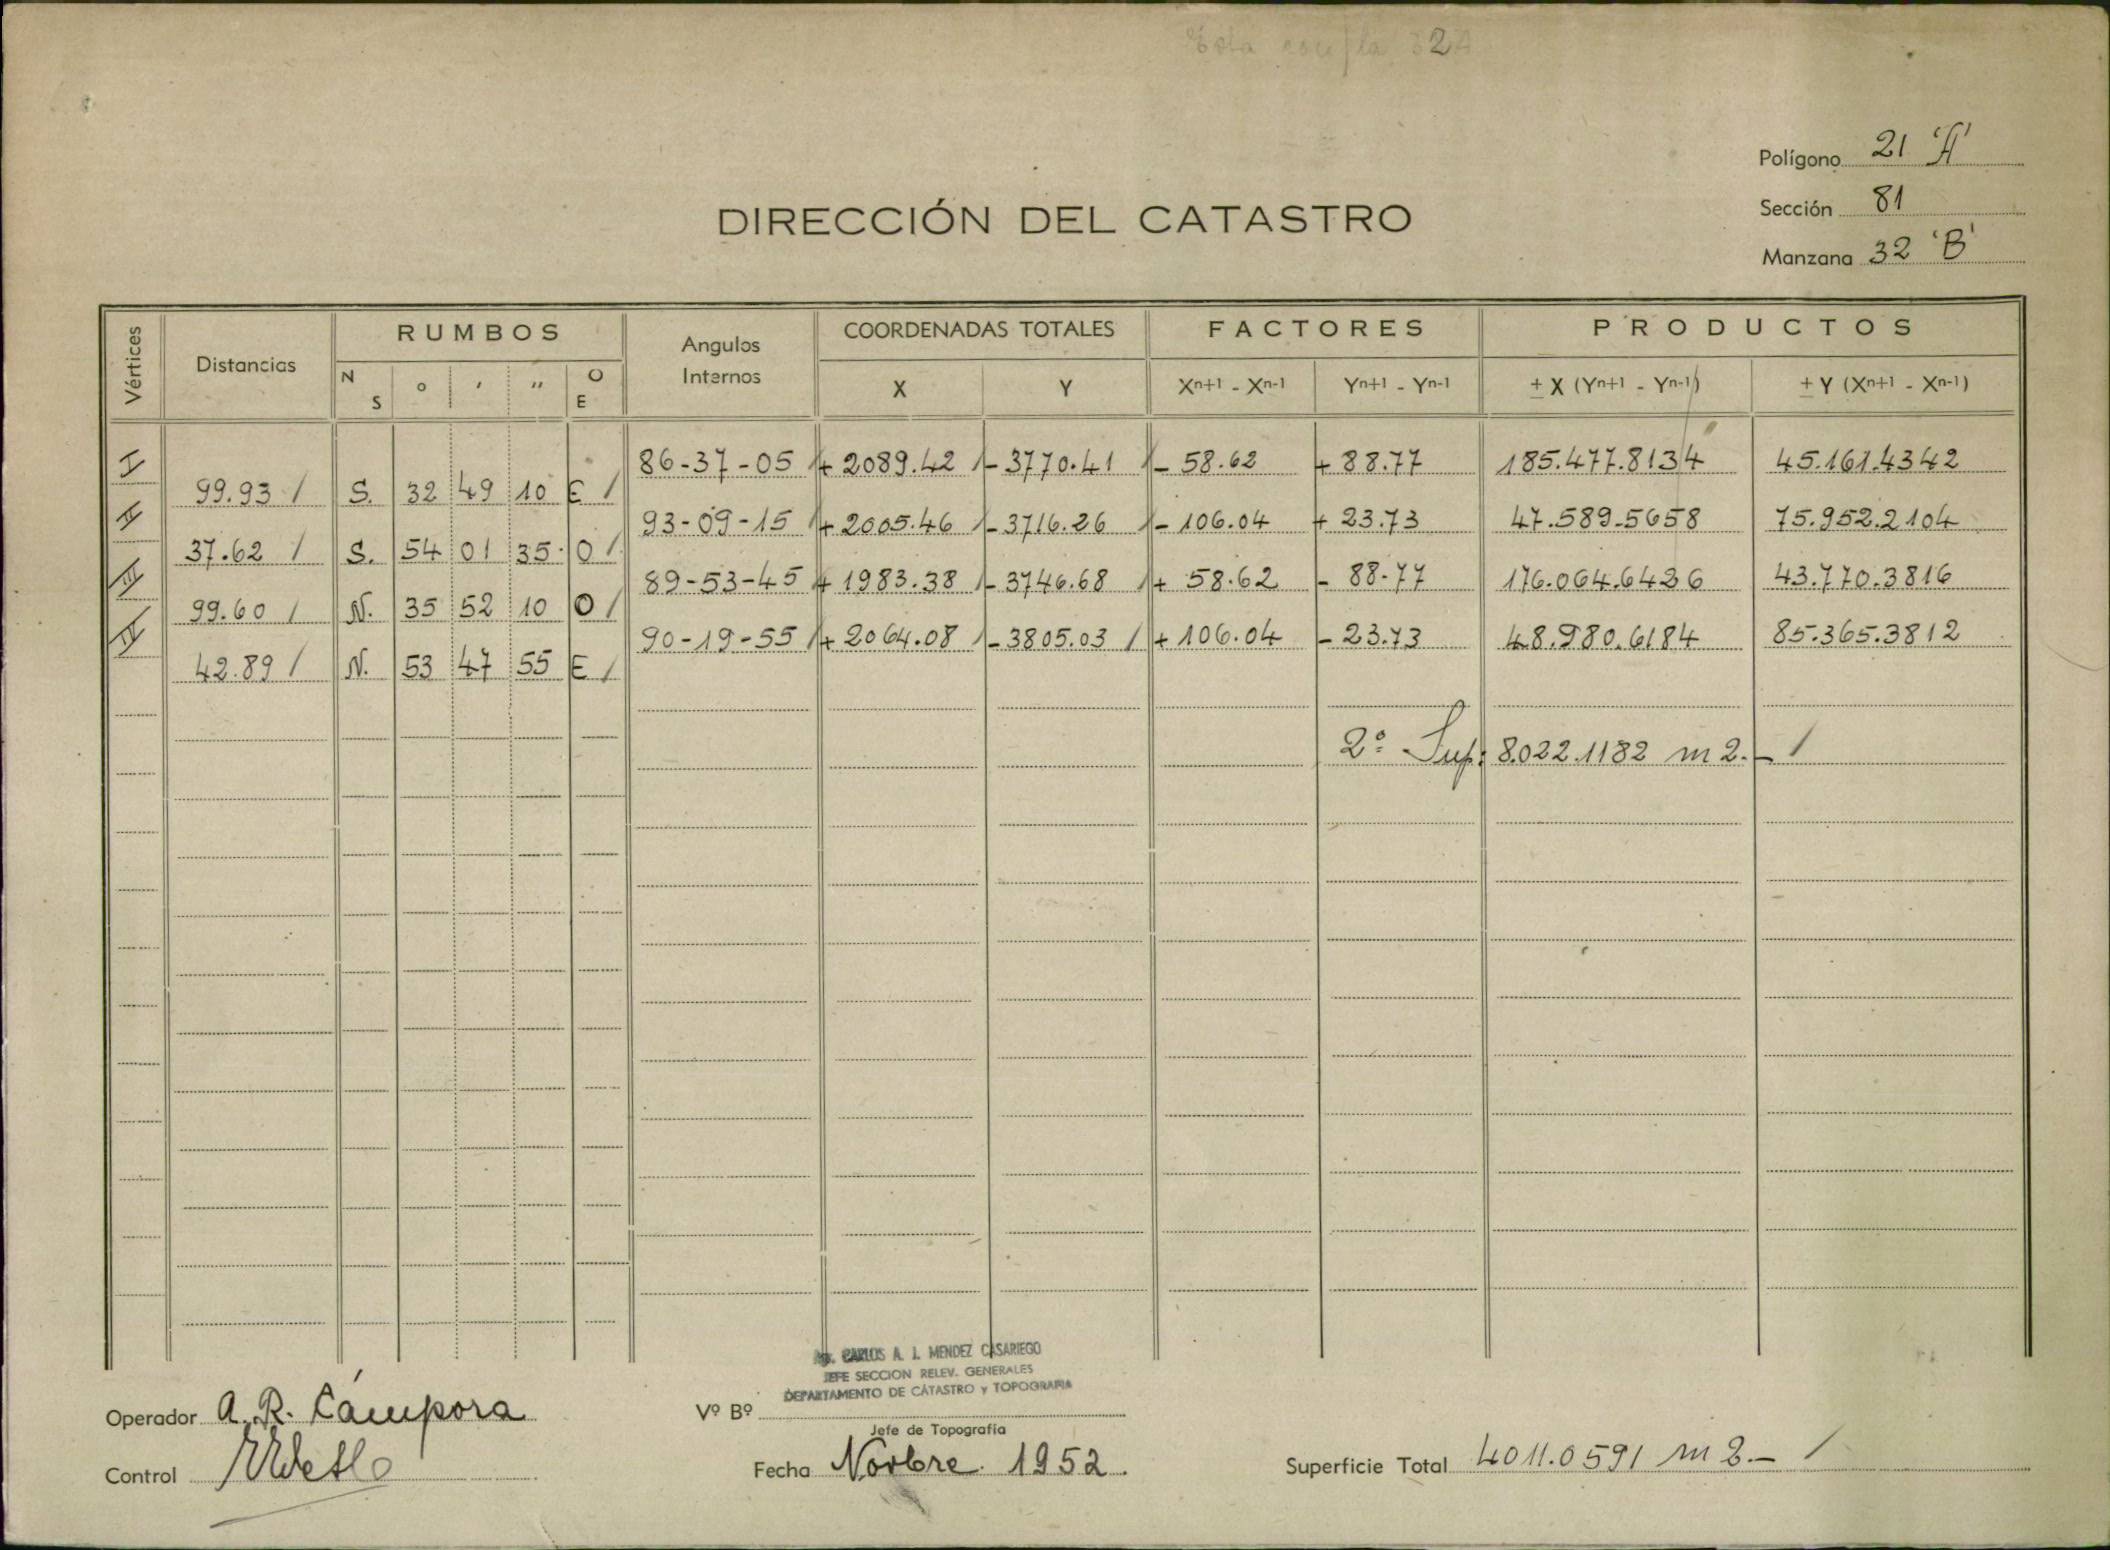 Esta con la 32A
Polígono 21 'A'
Sección 81
Manzana 32 'B'
DIRECCIÓN DEL CATASTRO
Vértices Distancias RUMBOS Angulos Internos COORDENADAS TOTALES FACTORES PRODUCTOS
N S ° ' '' O E X Y Xn+1 - Xn-1 Yn+1 - Yn-1 ± X (Yn+1 - Yn-1) ± Y (Xn+1 - Xn-1)
I 86-37-05 / + 2089.42 / - 3770.41 / - 58.62 + 88.77 185.477.8134 45.161.4342
99.93 / S. 32 49 10 E /
II 93-09-15 / + 2005.46 / - 3716.26 / - 106.04 + 23.73 47.589.5658 75.952.2104
37.62 / S. 54 01 35 O /
III 89-53-45 + 1983.38 / - 3746.68 / + 58.62 - 88.77 176.064.6426 43.770.3816
99.60 / N. 35 52 10 O /
IV 90-19-55 / + 2064.08 / - 3805.03 / + 106.04 - 23.73 48.980.6184 85.365.3812
42.89 / N. 53 47 55 E /
2° Sup: 8.022.1182 m 2.- /
Ag. CARLOS A. J. MENDEZ CASARIEGO
JEFE SECCION RELEV. GENERALES
DEPARTAMENTO DE CATASTRO y TOPOGRAFIA
Operador A. R. Cámpora
Vº Bº
Jefe de Topografía
Control
Fecha Novbre. 1952.
Superficie Total 4011.0591 m 2.- /